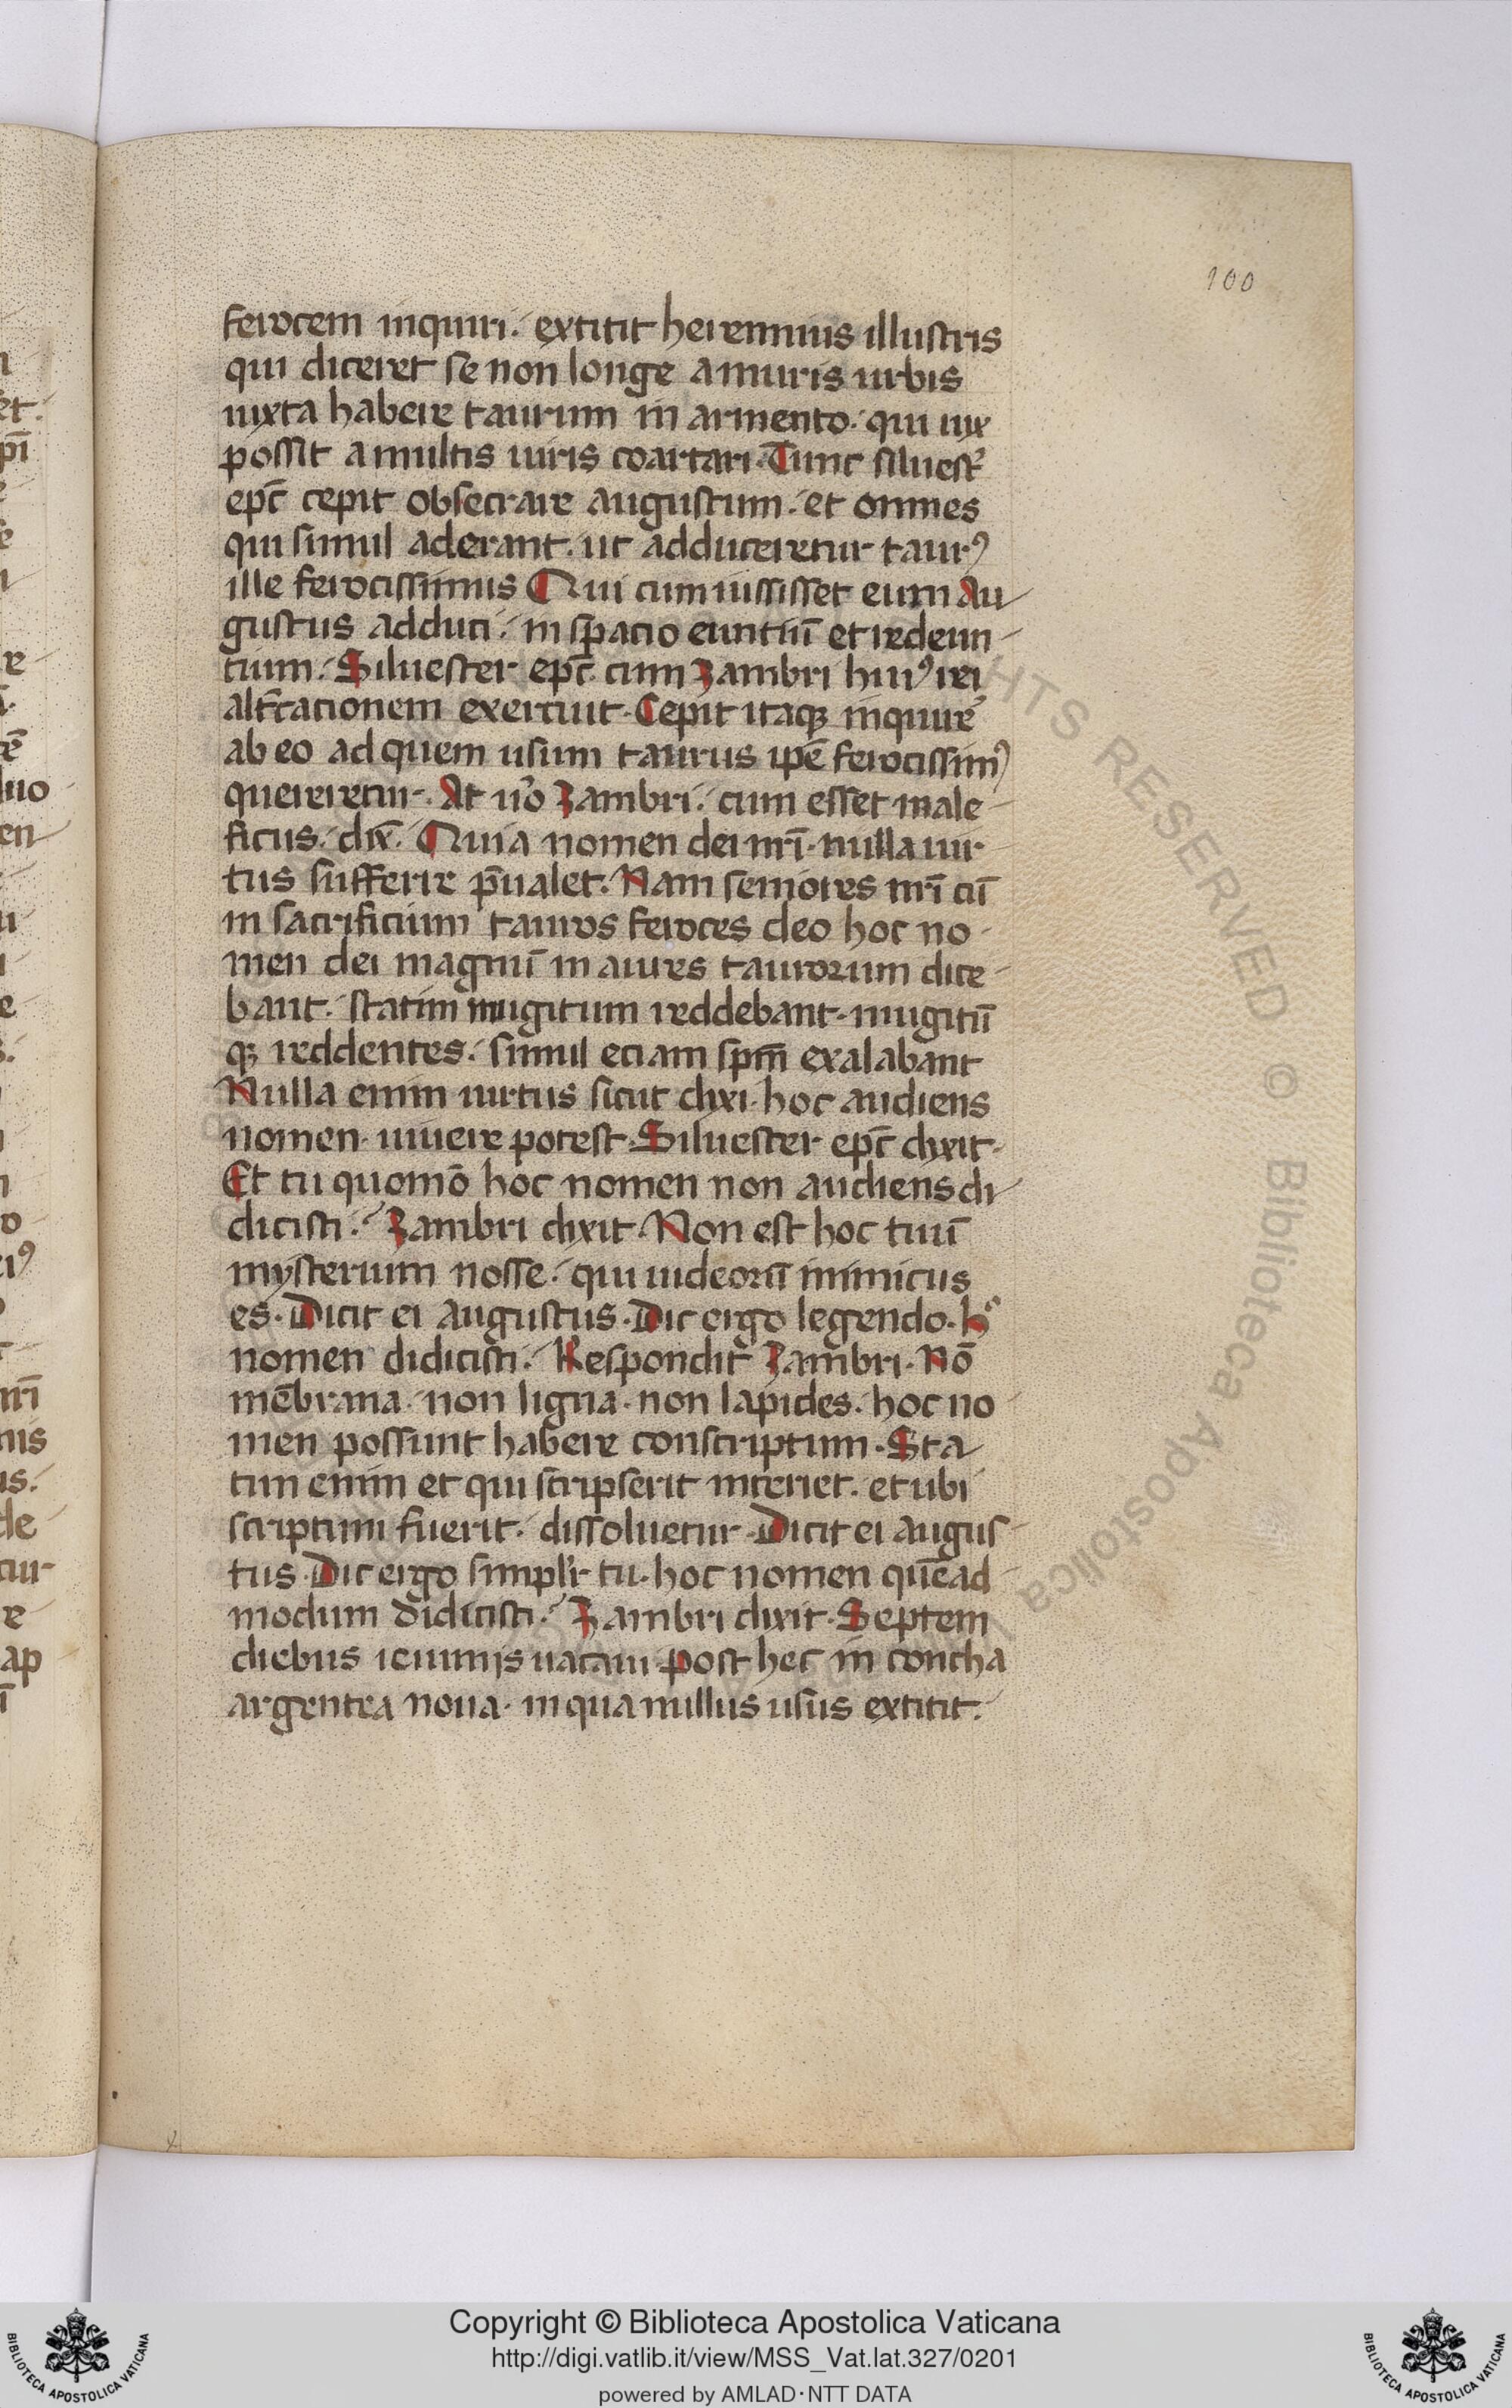 100
ferocem inquiri. extitit herennius illustris
qui diceret se non longe a muris urbis
iuxta habere taurum in armento. qui uix
possit a multis uiris coartari. Tunc siluest᷑
ep̅c cepit obsecrare augustum. et omnes
qui simul aderant. ut adduceretur taurꝰ
ille ferocissimus Qui cum iussisset eum Au
gustus adduci. in spacio euntiū et redeun-
tium. Siluester ep̅c cum Zambri huiꝰ rei
alt̅cationem exercuit. Cepit itaqꝫ inquirē
ab eo ad quem usum taurus ipē ferocissimꝰ
quereretur. At u̾o Zambri. cum esset male-
ficus. dix̅. Quia nomen dei nr̄i. nulla uir-
tus sufferre p̄ualet. Nam seniores nr̄i cū
in sacrificium tauros feroces deo hoc no-
men dei magnū in aures taurorum dice-
bant. statim mugitum reddebant. mugitū
qꝫ reddentes. simul eciam sp̅m exalabant
Nulla enim uirtus sicut dixi. hoc audiens
nomen uiuere potest. Siluester ep̅c dixit.
Et tu quomō hoc nomen non audiens di-
dicisti. Zambri dixit. Non est hoc tuū
mysterium nosse. qui iudeorū inimicus
es. Dicit ei augustus. Dic ergo legendo. h°
nomen didicisti. Respondit Zambri. Nō
mēbrana. non ligna. non lapides. hoc no-
men possunt habere conscriptum. Sta-
tim enim et qui scripserit interiet. et ubi
scriptum fuerit. dissoluetur. Dicit ei augus-
tus. Dic ergo simpl̾r tu. hoc nomen quēad-
modum didicisti. Zambri dixit. Septem
diebus ieiunijs uacaui. post hec in concha
argentea noua. in qua nullus usus extitit.
HTS RESERVED © Biblioteca Apostolica
Copyright © Biblioteca Apostolica Vaticana
http://digi.vatlib.it/view/MSS_Vat.lat.327/0201
powered by AMLAD·NTT DATA
BIBLIOTECA APOSTOLICA VATICANA
BIBLIOTECA APOSTOLICA VATICANA